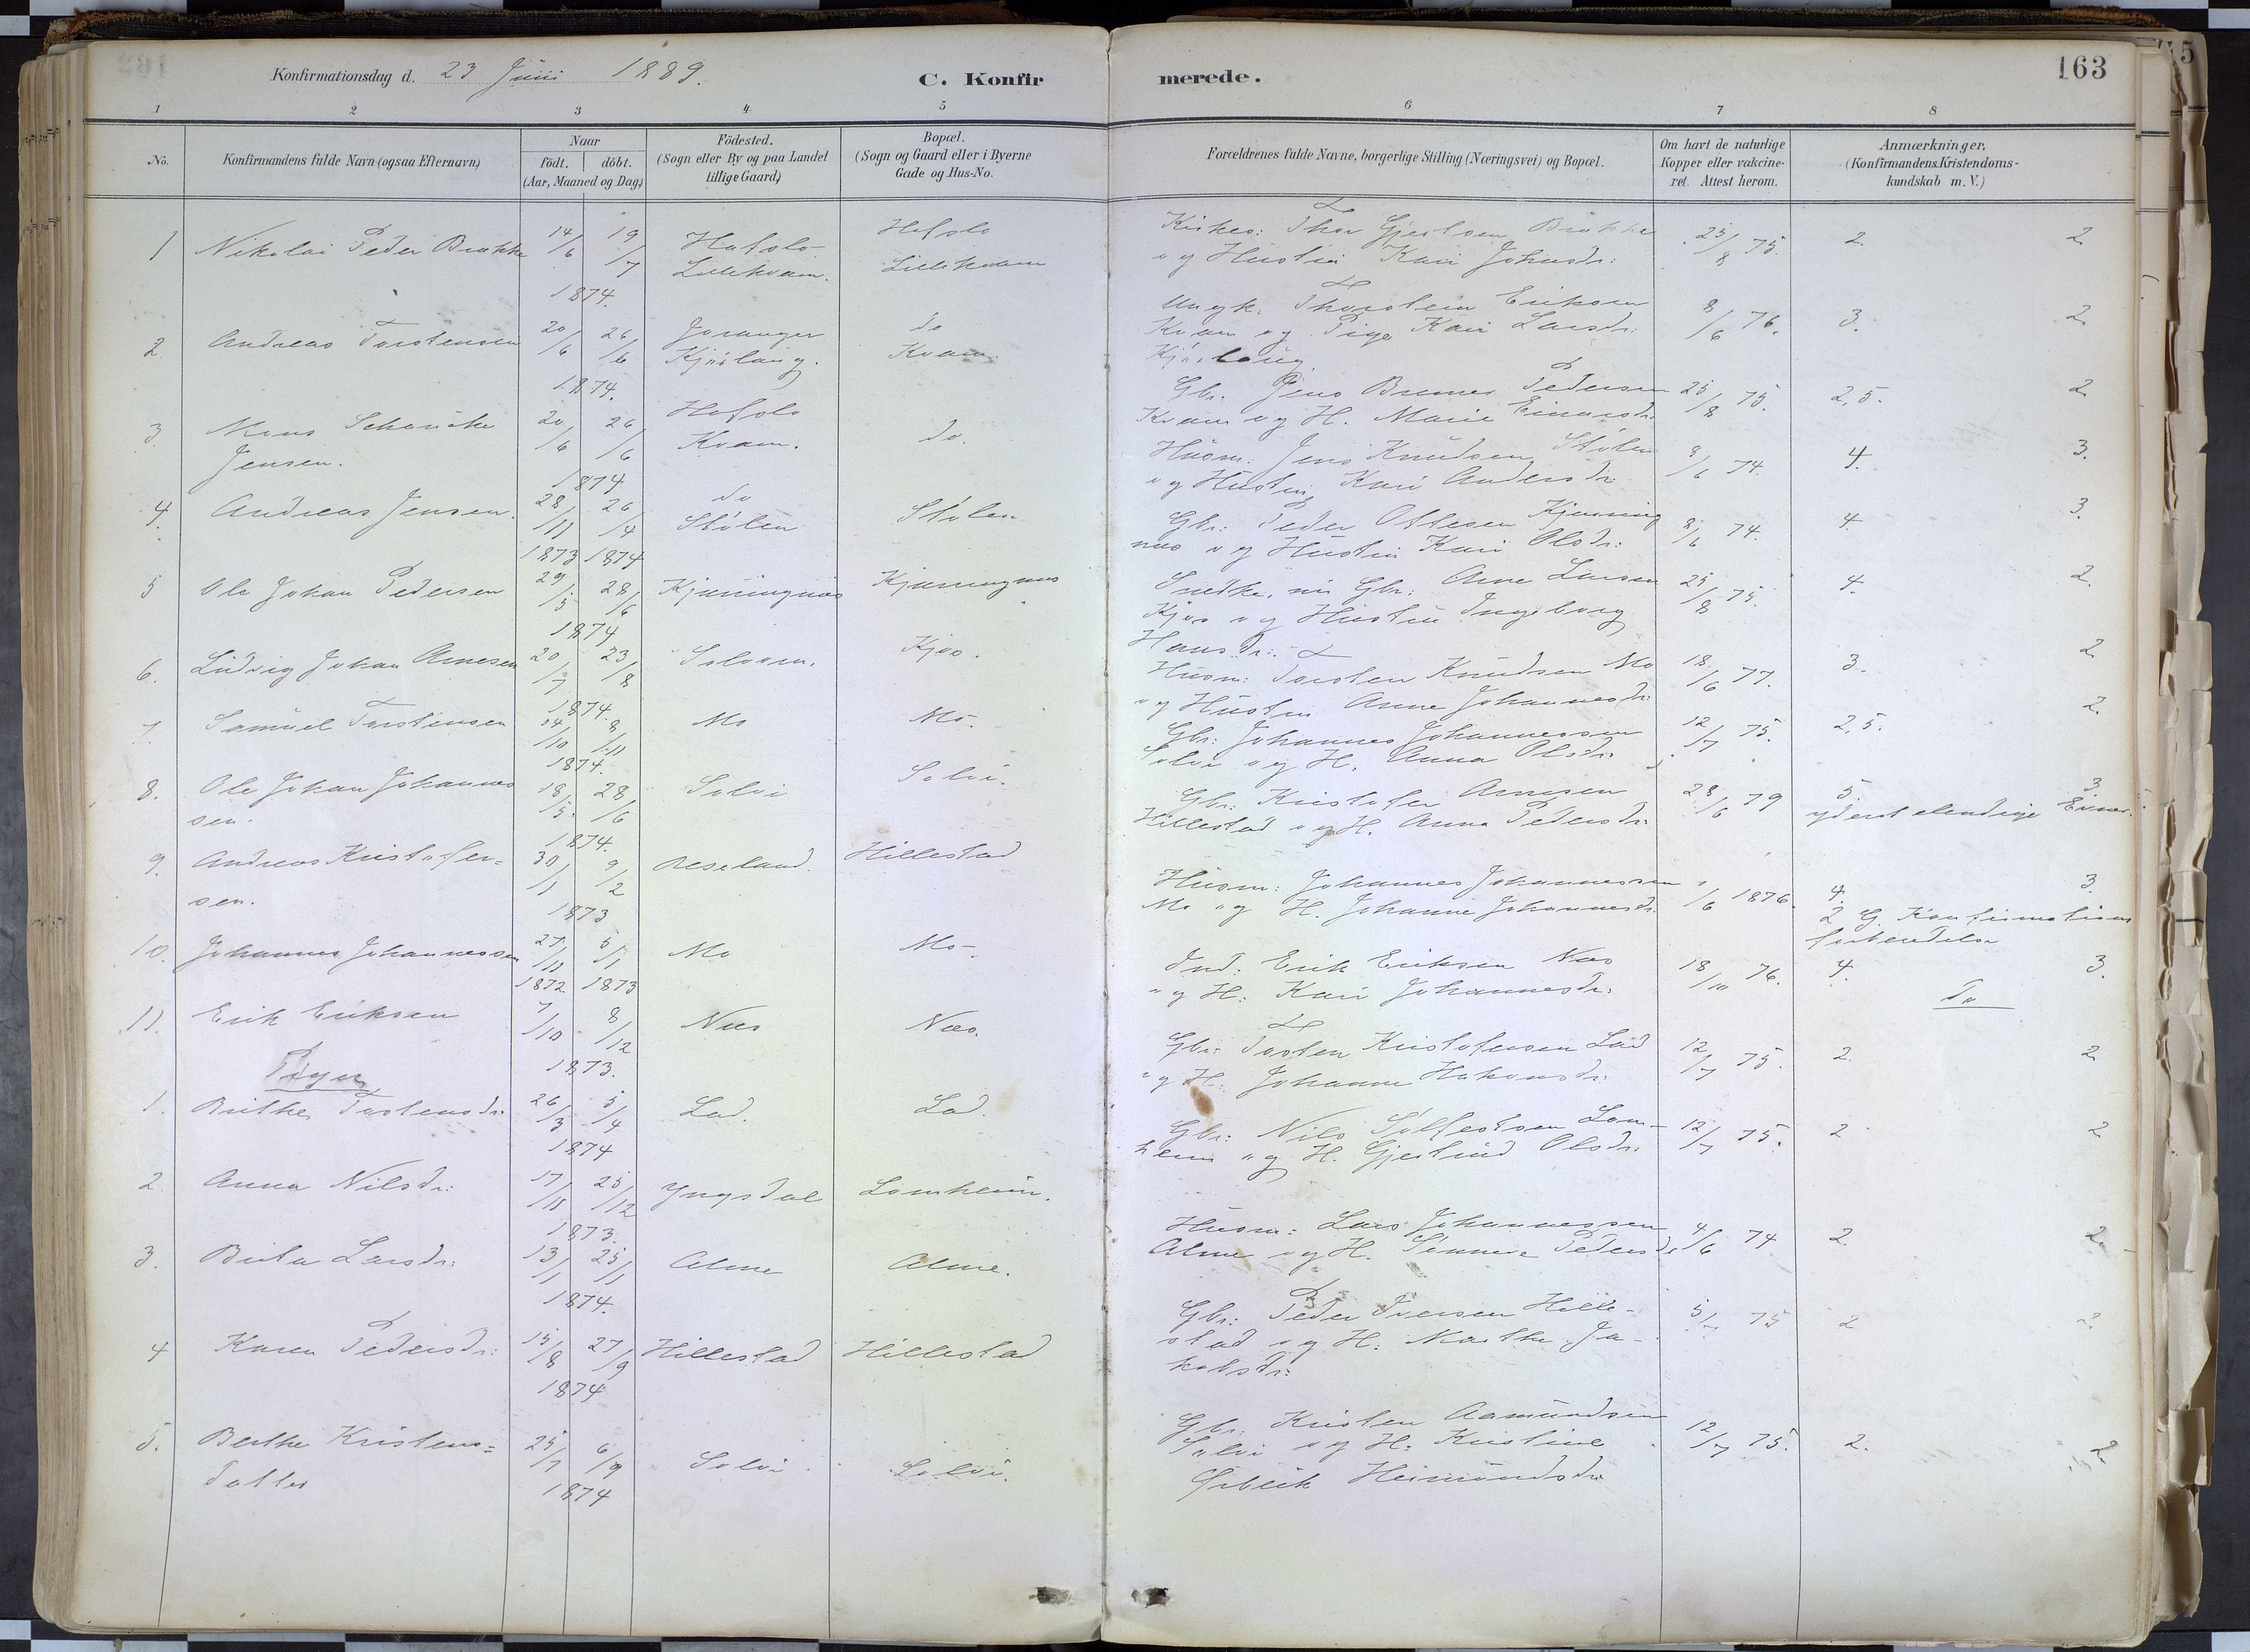 Konfirmationsdag d. 23 Juni 1889.
C. Konfirmerede.
163
1 2 3 4 5 6 7 8
No.
Konfirmandens fulde Navn (ogsaa Efternavn)
Naar
födt. döbt.
(Aar, Maaned og Dag)
Födested.
(Sogn eller By og paa Landet
tillige Gaard)
Bopæl.
(Sogn og Gaard eller i Byerne
Gade og Hus-No.
Forældrenes fulde Navne, borgerlige Stilling (Næringsvei) og Bopæl.
Om havt de naturlige
Kopper eller vakcine-
ret. Attest herom.
Anmærkninger,
(Konfirmandens Kristendoms-
kundskab m. V.)
1 Nikolai Peder Brække 14/6 19/7 1874. Hafslo Lillekvam. Hafslo Lillekvam
Thor Gjertsen Brække
og Hustru Kari Johnsdr: 25/8 75. 2. 2
2. Andreas Torstensen 20/6 26/6 1874. Joranger do Kvam.
Ungk: Thorstein Eriksen
Kvam og Pige Kari Larsdr: 8/6 76. 3. 2
3. Mons Schanche
Jensen. 20/6 26/6 1874 Hafslo Kvam. do.
Gbr. Jens Bremer Pedersen
Kvam og H. Marie Einarsdr. 25/8 75. 2,5. 2
4. Andreas Jensen. 28/11 1873 26/4 1874 do Stölen Stölen
Husm: Jens Knudsen Stölen
og Hustru Kari Andersdr. 8/6 74. 4. 3.
5 Ole Johan Pedersen 29/5 28/6 1874 Kjærringnæs Kjærringnæs
Gbr: Peder Ottesen Kjærring
næs og Hustru Kari Olsdr: 8/6 74. 4. 3.
6. Ludvig Johan Arnesen 20/7 23/8 1874. Kjos.
Snedker, nu Gbr: Arne Larsen
Kjos og Hustru Ingeborg
Hansdr: 25/8 75. 4. 2.
7. Samuel Torstensen 24/10 8/11 1874. Mo Mo.
Husm: Torsten Knudsen Mo
og Hustru Anne Johannesdr: 18/6 77. 3. 2
8. Ole Johan Johannes
sen. 18/5 28/6 1874. Solvi Solvi.
Gbr: Johannes Johannessen
Solvi og H. Anna Olsdr. 12/7 75. 2,5. 2.
9. Andreas Kristofer-
sen. 30/1 9/2 1873 Aeseland. Hillestad
Gbr: Kristofer Arnesen
Hillestad og H. Anna Pedersdr: 28/6 79 5. 3.
yderst elendige Evner.
10. Johannes Johannessen 27/11 1872 5/1 1873 Mo Mo.
Husm: Johannes Johannessen
Mo og H. Johanne Johannesdr. /6 1876. 4. 3.
2 G. Konfirmations
forberedelse
11. Erik Eriksen 7/10 8/12 1873. Næs Næs.
Ind: Erik Eriksen Næs
og H. Kari Johannesdr. 18/10 76. 4. 3.
Do
Piger
1. Brithe Torstensdr. 26/3 5/4 1874 Lad. Lad.
Gbr: Torsten Kristofersen Lad
og H. Johanne Hakonsdr: 12/7 75. 2. 2
2 Anna Nilsdr: 17/11 25/12 1873. Yngsdal Lomheim.
Gbr: Nils Sölfestsen Lom-
heim og H. Gjertrud Olsdr: 12/7 75. 2 2
3. Brita Larsdr: 13/1 25/1 1874. Alme Alme.
Husm: Lars Johannessen
Alme og H. Senneve Pedersdr 4/6 74 2. 2.
4 Karen Pedersdr: 15/8 27/9 1874 Hillestad Hillestad
Gbr: Peder Iversen Hille-
stad og H. Marthe Ja-
kobsdr: 5/7 75 2 2
5. Berthe Kristens-
datter 25/7 6/9 1874 Solvi Solvi.
Gbr. Kristen Aamundsen
Solvi og H. Kristine
Heimundsdr. 12/7 75. 2. 2